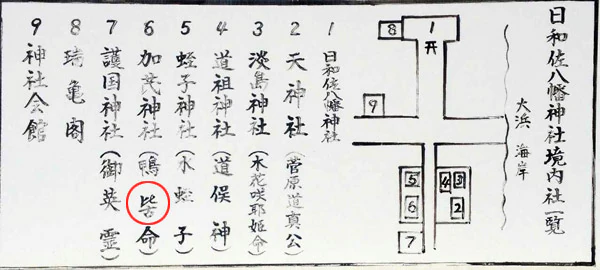 日和佐八幡神社境内社一覧
大浜 海岸
1
8
9
5 4 3
6 2
7
1 日和佐八幡神社
2 天神社(菅原道真公)
3 淡島神社(木花咲耶姫命)
4 道祖神社(道俣神)
5 蛭子神社(水蛭子)
6 加茂神社(鴨命)
7 護国神社(御英霊)
8 琦亀閣
9 神社会館